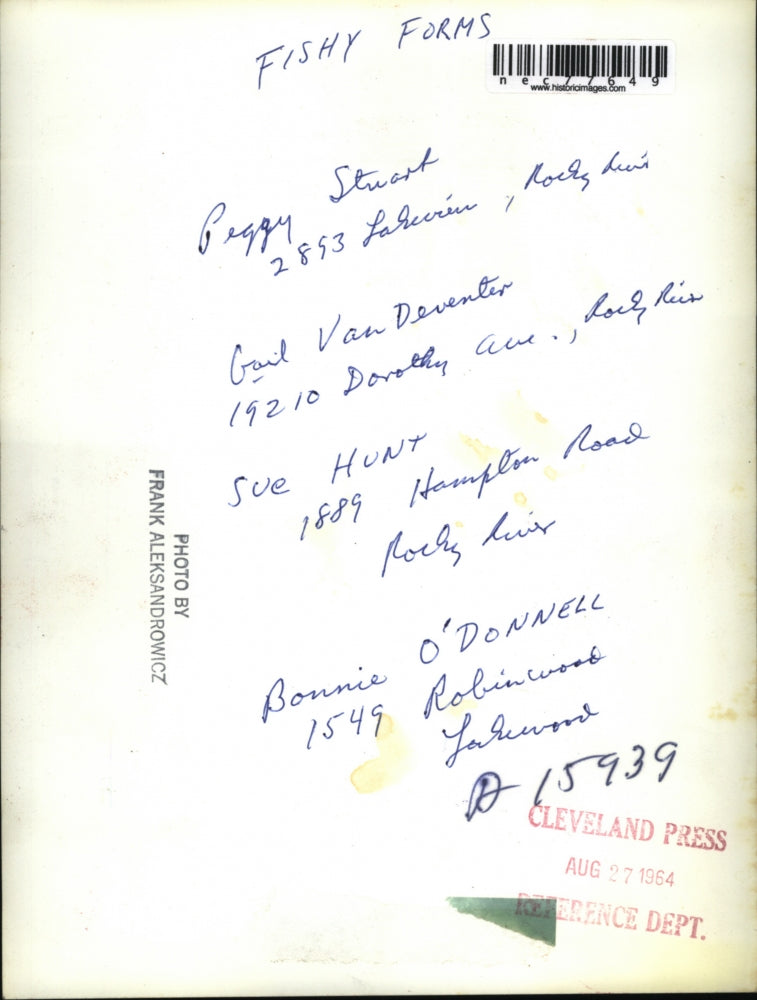 FISHY FORMS
nec77649
www.historicimages.com
Peggy Stuart
2893 Lakeview, Rocky River
Gail Van Deventer
19210 Dorothy Ave., Rocky River
SUE HUNT
1889 Hampton Road
Rocky River
PHOTO BY
FRANK ALEKSANDROWICZ
Bonnie O'DONNELL
1549 Robinwood
Lakewood
A 15939
CLEVELAND PRESS
AUG 27 1964
REFERENCE DEPT.